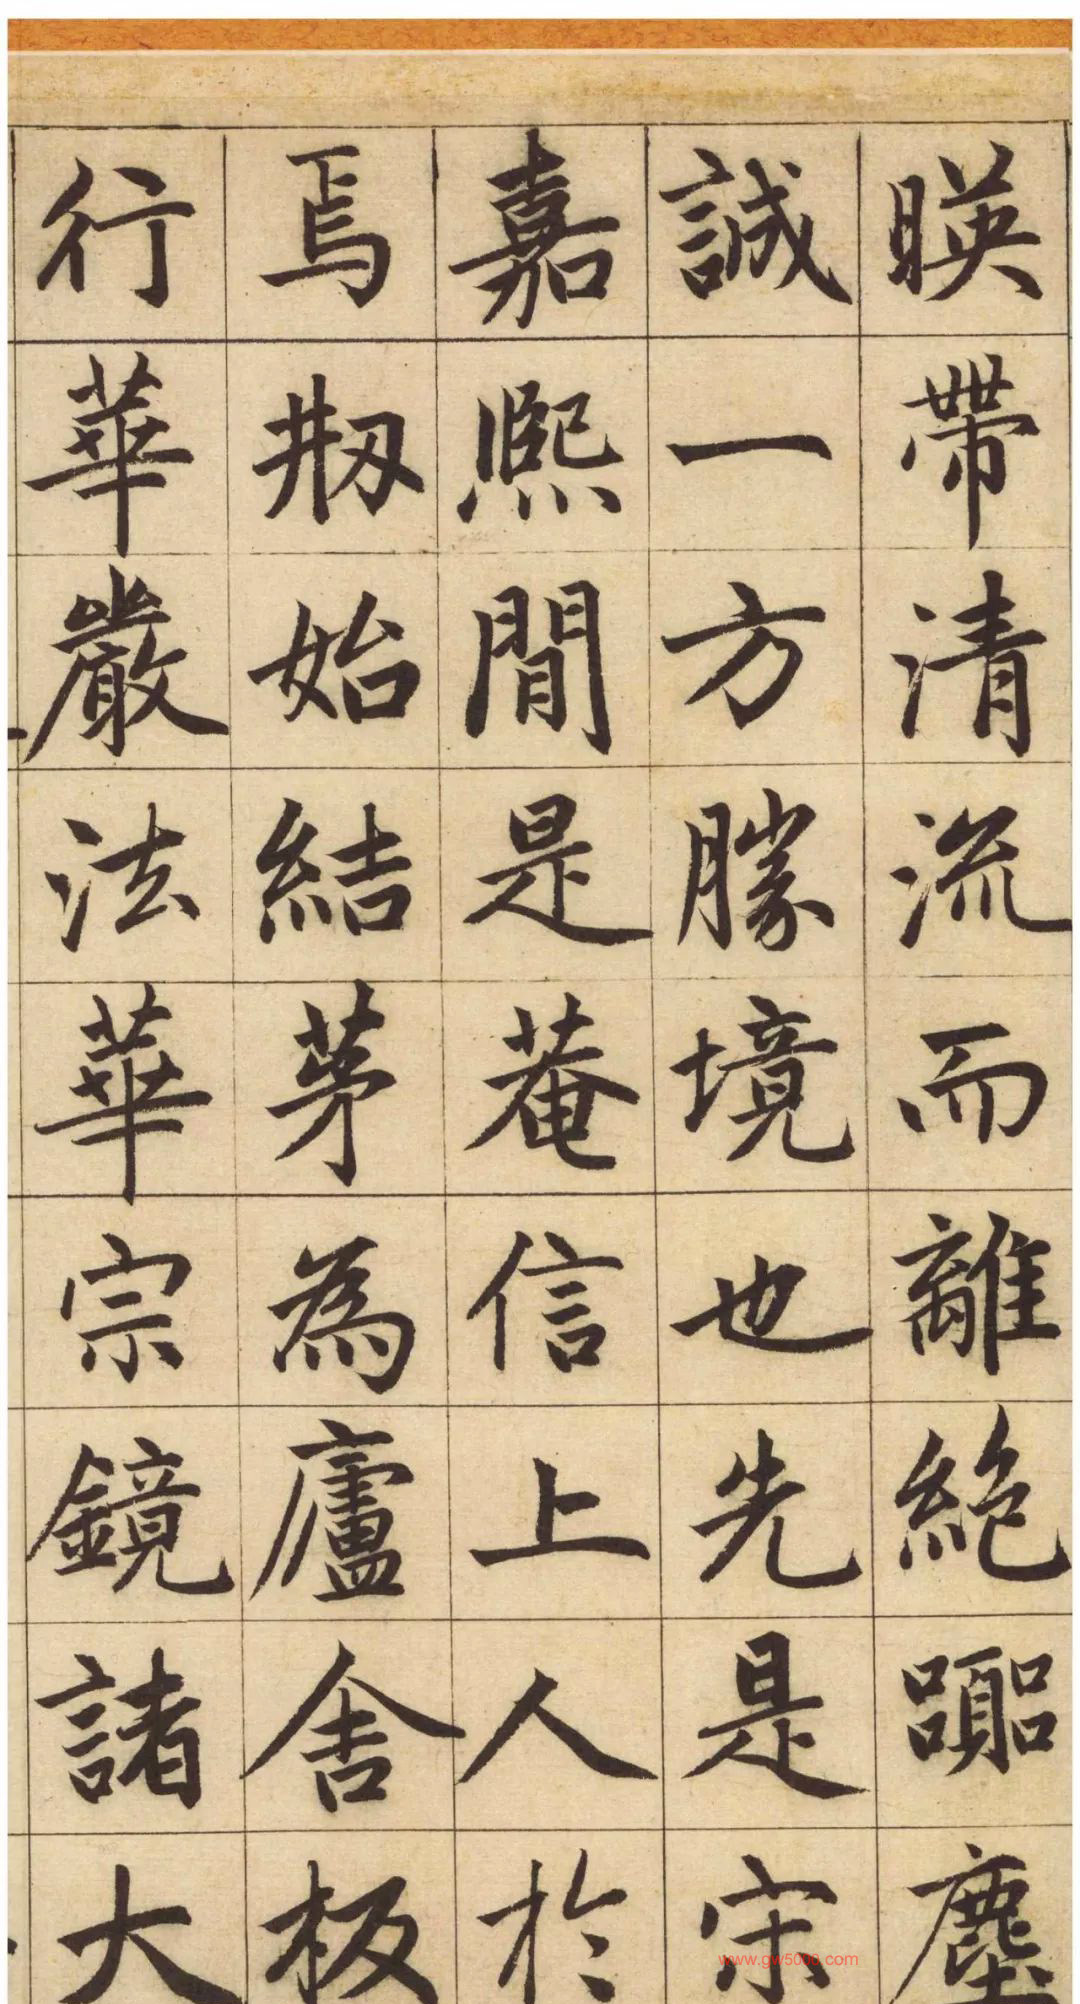 暎帶清流而離絶嚻塵
誠一方勝境也先是宋
嘉熙間是菴信上人於
焉剏始結茅為廬舍板
行華嚴法華宗鏡諸大
www.gw5000.com